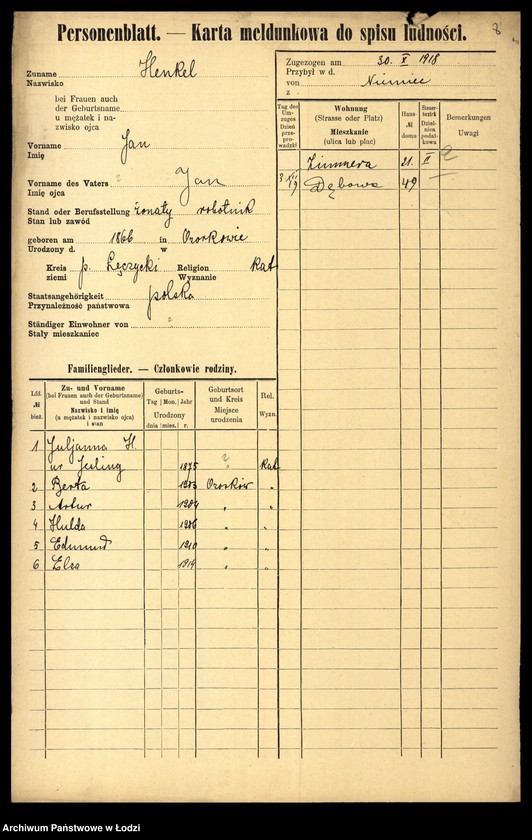 Personenblatt. — Karta meldunkowa do spisu ludności.
8
Zuname Henkel
Nazwisko
bei Frauen auch
der Geburtsname
u mężatek i na-
zwisko ojca
Vorname Jan
Imię
Vorname des Vaters Jan
Imię ojca
Stand oder Berufsstellung żonaty robotnik
Stan lub zawód
geboren am 1866 in Ozorkowie
Urodzony d. w
Kreis p. Łęczycki Religion Kat
ziemi Wyznanie
Staatsangehörigkeit polska
Przynależność państwowa
Ständiger Einwohner von ?
Stały mieszkaniec
Zugezogen am 30. X 1918
Przybył w d.
von Niemiec
z
Tag des Um-zuges Dzień prze-pro-wadzki
Wohnung
(Strasse oder Platz)
Mieszkanie
(ulica lub plac)
Haus-
№
domu
Steuer-bezirk Dziel-nica podat-kowa
Bemerkungen
Uwagi
Zimmera 21. II
3 XII 19 Dębowa 49
Familienglieder. — Członkowie rodziny.
Lfd.
№
bież.
Zu- und Vorname
(bei Frauen auch der Geburtsname)
und Stand
Nazwisko i imię
(u mężatek i nazwisko ojca)
i stan
Geburts-
Tag Mon. Jahr
Urodzony
dnia mies. r.
Geburtsort
und Kreis
Miejsce
urodzenia
Rel.
Wyzn.
1 Juljanna H.
ur Jeiling 1875 ? Kat
2 Berta 1903 Ozorków "
3 Artur 1904 " "
4 Hulda 1906 " "
5 Edmund 1910 " "
6 Elza 1914 " "
Archiwum Państwowe w Łodzi